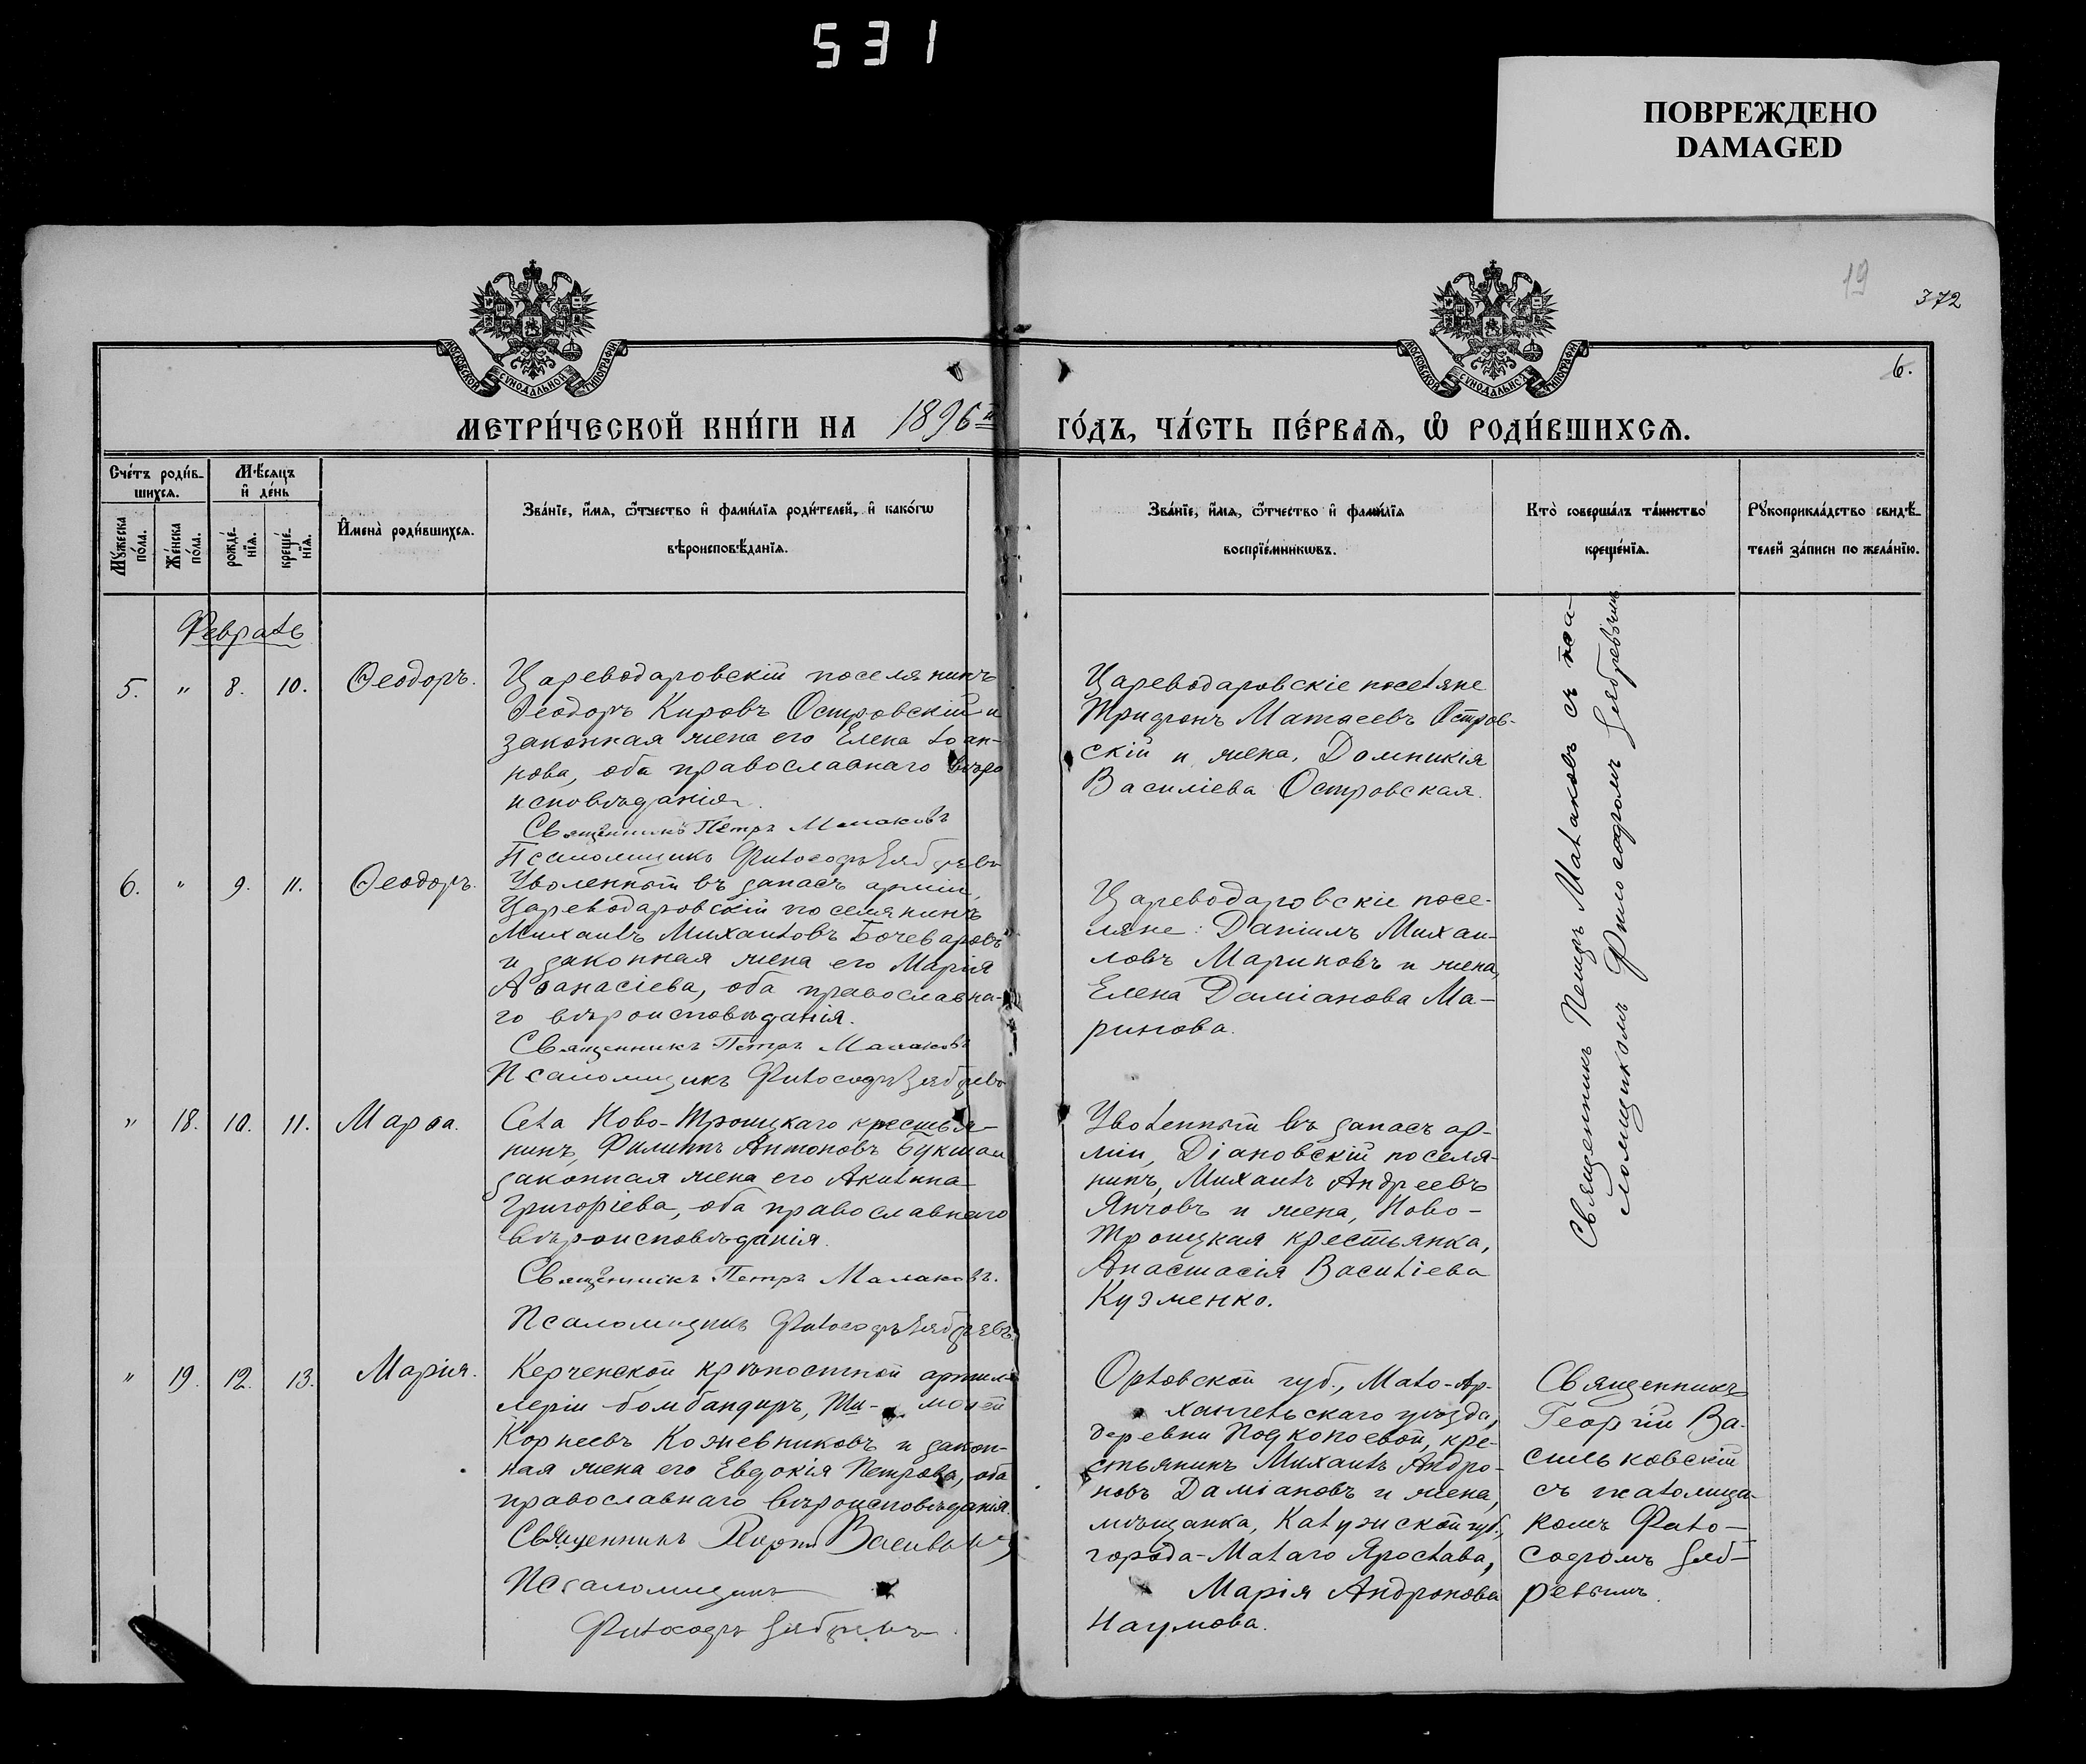 531
ПОВРЕЖДЕНО
DAMAGED
19
372
6.
МОСКОВСКОЙ СУНОДАЛЬНОЙ ТИПОГРАФІИ
МОСКОВСКОЙ СУНОДАЛЬНОЙ ТИПОГРАФІИ
МЕТРИ́ЧЕСКОЙ КНИ́ГИ НА 1896й ГО́ДЪ, ЧА́СТЬ ПЕ́РВАѦ, Ѽ РОДИ́ВШИХСѦ.
Сче́тъ роди́в-
шихсѧ.
Мѣ́сѧцъ
и҆ де́нь
Мꙋ́жеска
по́ла.
Же́нска
по́ла.
рожде́-
нїѧ.
креще́-
нїѧ.
И҆мена̀ роди́вшихсѧ.
Зва́нїе, и҆́мѧ, ѻ҆́тчество и҆ фами́лїѧ роди́телей, и҆ како́гѡ
вѣроисповѣ́данїѧ.
Зва́нїе, и҆́мѧ, ѻ҆́тчество и҆ фами́лїѧ
воспрїе́мникѡвъ.
Кто̀ соверша́лъ та́инство
креще́нїѧ.
Рꙋкоприкла́дство свидѣ́-
телей за́писи по жела́нїю.
Февраль
5. " 8. 10. Ѳеодоръ.
Цареводаровскій поселянинъ
Ѳеодоръ Кировъ Островскій и
законная жена его Елена Іоан-
нова, оба православнаго вѣро
исповѣданія.
Священникъ Петръ Малаковъ
Псаломщикъ Филосовъ
Цареводаровскіе поселяне
Трифонъ Матѳеевъ Остров-
скій и жена, Домникія
Василіева Островская.
Священникъ Петръ Малаковъ съ пса-
ломщикомъ Филосодромъ
6. " 9. 11. Ѳеодоръ.
Уволенный въ запасъ арміи,
Цареводаровскій поселянинъ
Михаилъ Михаиловъ Бочеваровъ
и законная жена его Марія
Аѳанасіева, оба православна-
го вѣроисповѣданія.
Священникъ Петръ Малаковъ
Псаломщикъ
Цареводаровскіе посе-
ляне: Даніилъ Михаи-
ловъ Мариновъ и жена,
Елена Даміанова Ма-
ринова.
" 18. 10. 11. Марѳа.
Села Ново-Троицкаго крестья-
нинъ, Филиппъ Антоновъ Букша и
законная жена его Акилина
Григоріева, оба православнаго
вѣроисповѣданія.
Священникъ Петръ Малаковъ.
Псаломщикъ
Уволенный въ запасъ ар-
міи, Діановскій поселя-
нинъ, Михаилъ Андреевъ
Янчовъ и жена, Ново-
Троицкая крестьянка,
Анастасія Василіева
Кузменко.
" 19. 12. 13. Марія.
Керченской крѣпостной артил-
леріи бомбандиръ, Ти- моѳей
Корнеевъ Кожевниковъ и закон-
ная жена его Евдокія Петрова, оба
православнаго вѣроисповѣданія.
Священникъ
Псаломщикъ
Орловской губ., Мало-Ар-
хангельскаго уѣзда,
деревни Подкопоевой, кре-
стьянинъ Михаилъ Андро-
новъ Даміановъ и жена,
мѣщанка, Калужской губ.,
города-Малаго Ярослава,
Марія Андронова
Наумова.
Священникъ
Георгій Ва-
сильковскій
съ псаломщи-
комъ Фило-
софомъ